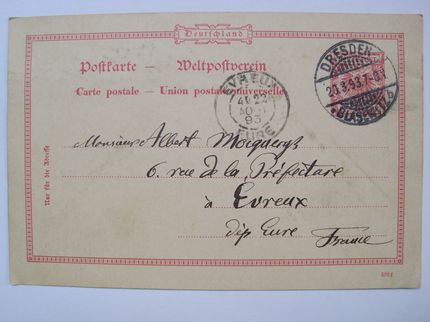 Deutschland
Postkarte — Weltpostverein
Carte postale — Union postale universelle
DRESDEN
20.3.93.7-8
BLASEWITZ b
EVREUX
22
93
EURE
Nur für die Adresse
Monsieur Albert Mocquerys
6. rue de la Préfecture
à Evreux
dép Eure France